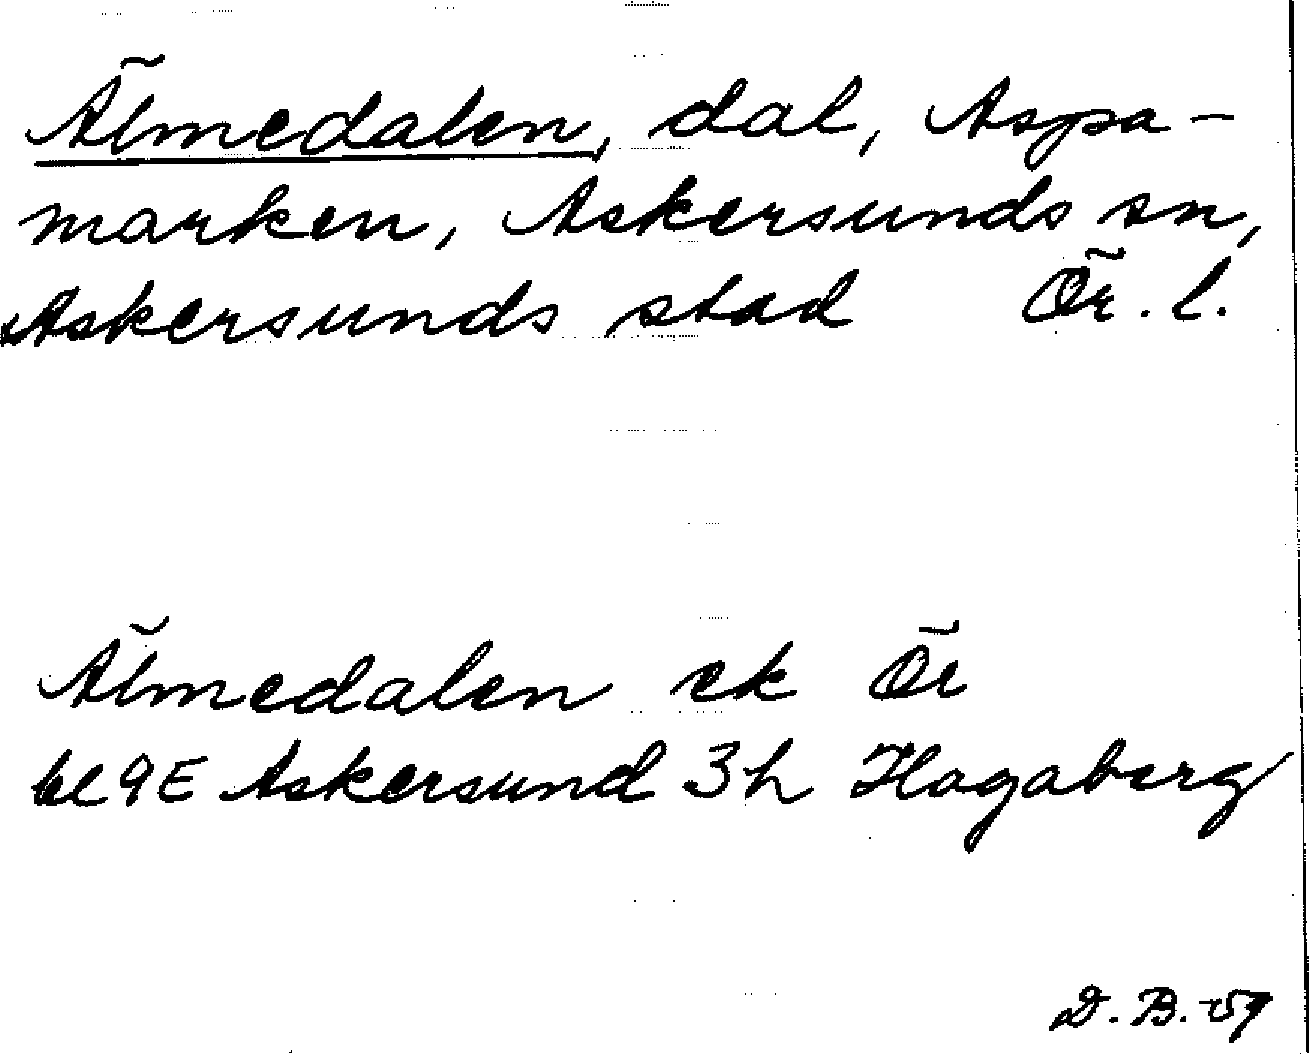 Älmedalen, dal, Aspa-
marken, Askersunds sn,
Askersunds stad Ör. l.
Älmedalen ek Ör
bl 9E Askersund 3h Hagaberg
D. B. -59